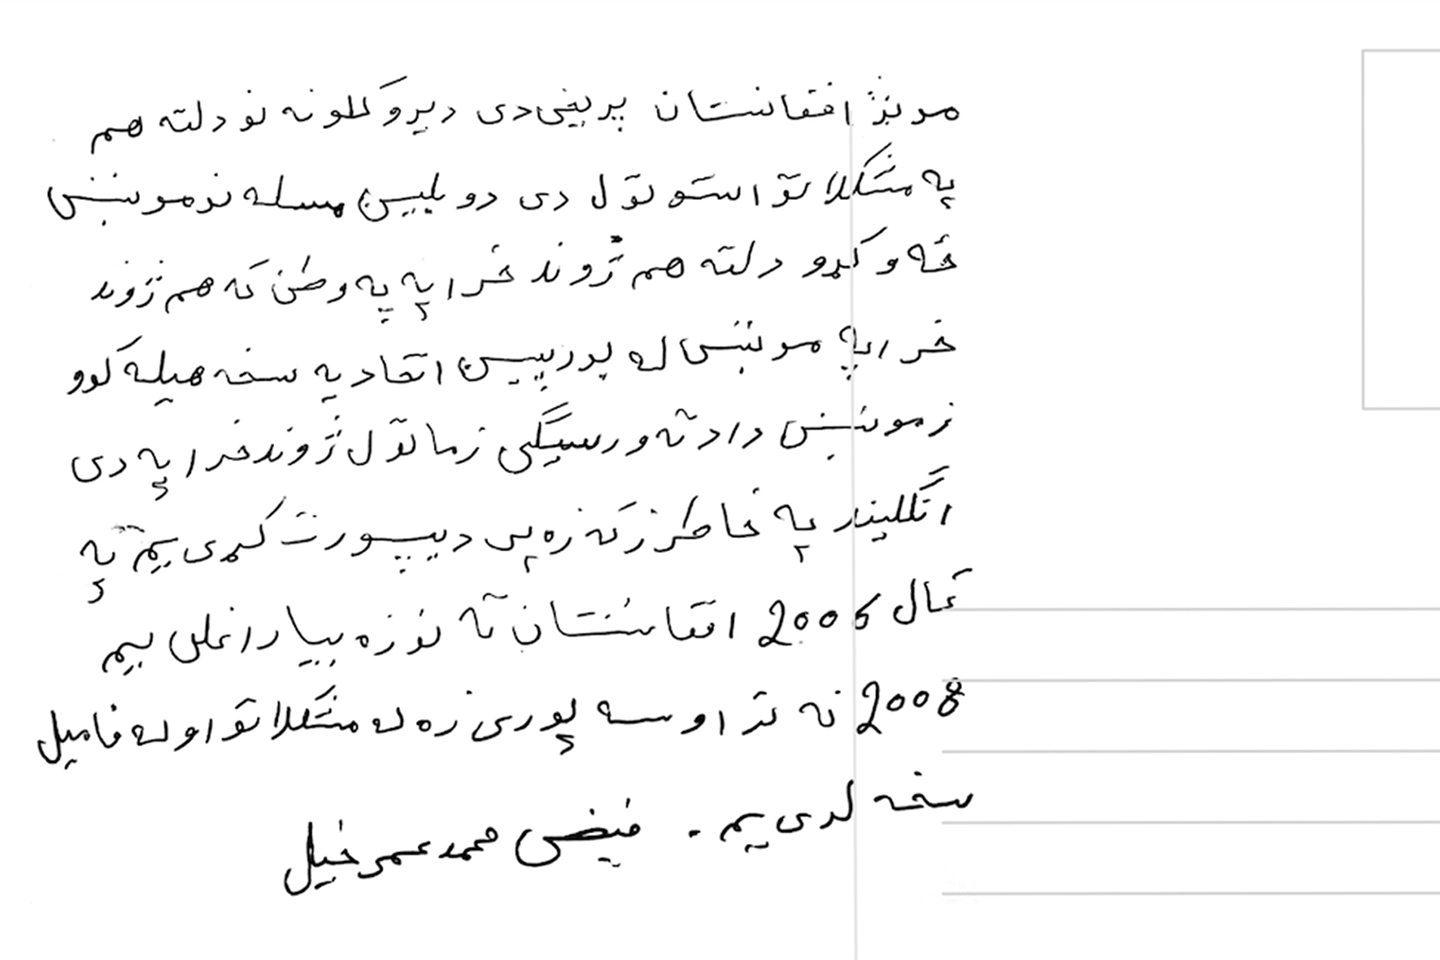 مونژ افغانستان پریښی دی دیرو کلونه نو دلته هم
په مشکلاتو استو ټول دی دوبلیین مسله نو مونښ
څه وکړو دلته هم ژوند خرابه په وطن که هم ژوند
خرابه مونښ له یورپیین اتحادیه سخه هیله کوو
زمونښ داد ته ورسیګی زما ټول ژوند خرابه دی
انگلیند په خاطر زکه زه یی دیپورت کړی یم په
کال 2006 افغانستان ته نو زه بیا راغلی یم
2008 نه تر اوسه پوری زه له مشکلاتو او له فامیل
سخه لری یم . فیض محمد عمرخیل